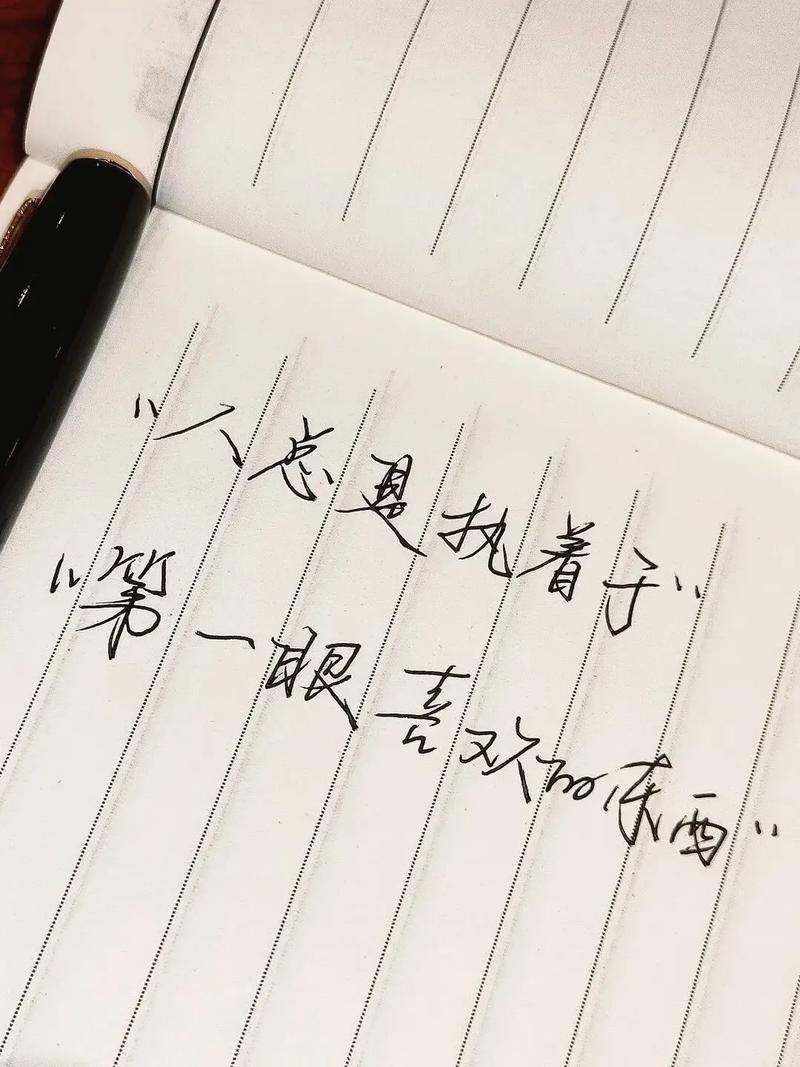 “人总是执着于”
“第一眼喜欢的东西”